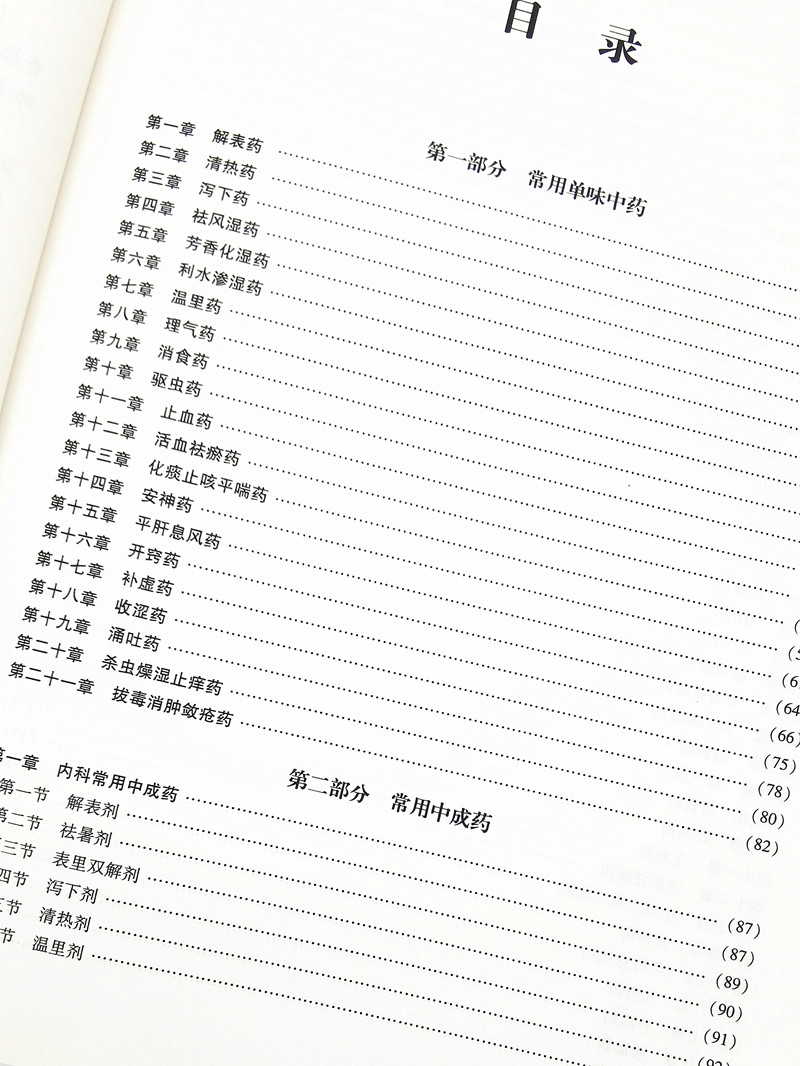 目 录
第一部分 常用单味中药
第一章 解表药
第二章 清热药
第三章 泻下药
第四章 祛风湿药
第五章 芳香化湿药
第六章 利水渗湿药
第七章 温里药
第八章 理气药
第九章 消食药
第十章 驱虫药
第十一章 止血药
第十二章 活血祛瘀药
第十三章 化痰止咳平喘药
第十四章 安神药
第十五章 平肝息风药
第十六章 开窍药 (64
第十七章 补虚药 (66)
第十八章 收涩药 (75)
第十九章 涌吐药 (78)
第二十章 杀虫燥湿止痒药 (80)
第二十一章 拔毒消肿敛疮药 (82)
第二部分 常用中成药
第一章 内科常用中成药 (87)
第一节 解表剂 (87)
第二节 祛暑剂 (89)
三节 表里双解剂 (90)
四节 泻下剂 (91)
节 清热剂 (92)
节 温里剂